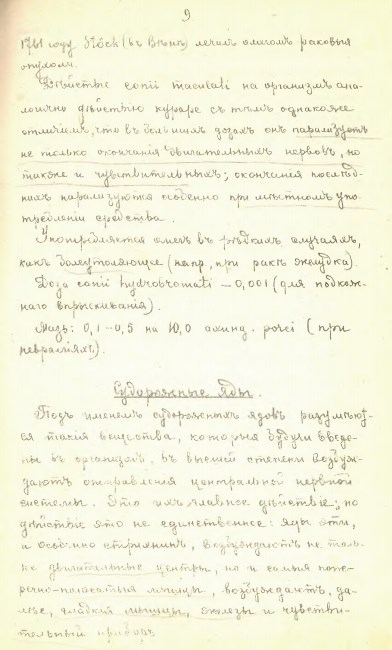 9
1761 году Störck (въ Вѣнѣ) лечилъ омегомъ раковыя
опухоли.
Дѣйствіе conii maculati на организмъ ана-
логично дѣйствію кураре съ тѣмъ однакоже
отличіемъ, что въ большихъ дозахъ онъ парализуетъ
не только окончанія двигательныхъ нервовъ, но
также и чувствительныхъ; окончанія послѣд-
нихъ парализуются особенно при мѣстномъ упо-
требленіи средства.
Употребляется омегъ въ рѣдкихъ случаяхъ,
какъ болеутоляющее (напр. при ракѣ желудка).
Доза conii hydrobromati — 0,001 (для подкож-
наго впрыскиванія).
Мазь: 0,1 – 0,5 на 10,0 axung. porci (при
невралгіяхъ).
Судорожные яды.
Подъ именемъ судорожныхъ ядовъ разумѣют-
ся такія вещества, которыя будучи введе-
ны въ организмъ, въ высшей степени возбуж-
даютъ отправленія центральной нервной
системы. Это ихъ главное дѣйствіе; но
дѣйствіе это не единственное: яды эти,
и особенно стрихнинъ, возбуждаютъ не толь-
ко двигательные центры, но и самыя попе-
речно-полосатыя мышцы, возбуждаютъ, да-
лѣе, гладкія мышцы, железы и чувстви-
тельный приборъ